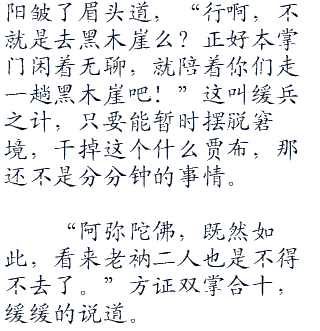 阳皱了眉头道，“行啊，不
就是去黑木崖么？正好本掌
门闲着无聊，就陪着你们走
一趟黑木崖吧！”这叫缓兵
之计，只要能暂时摆脱窘
境，干掉这个什么贾布，那
还不是分分钟的事情。
“阿弥陀佛，既然如
此，看来老衲二人也是不得
不去了。”方证双掌合十，
缓缓的说道。